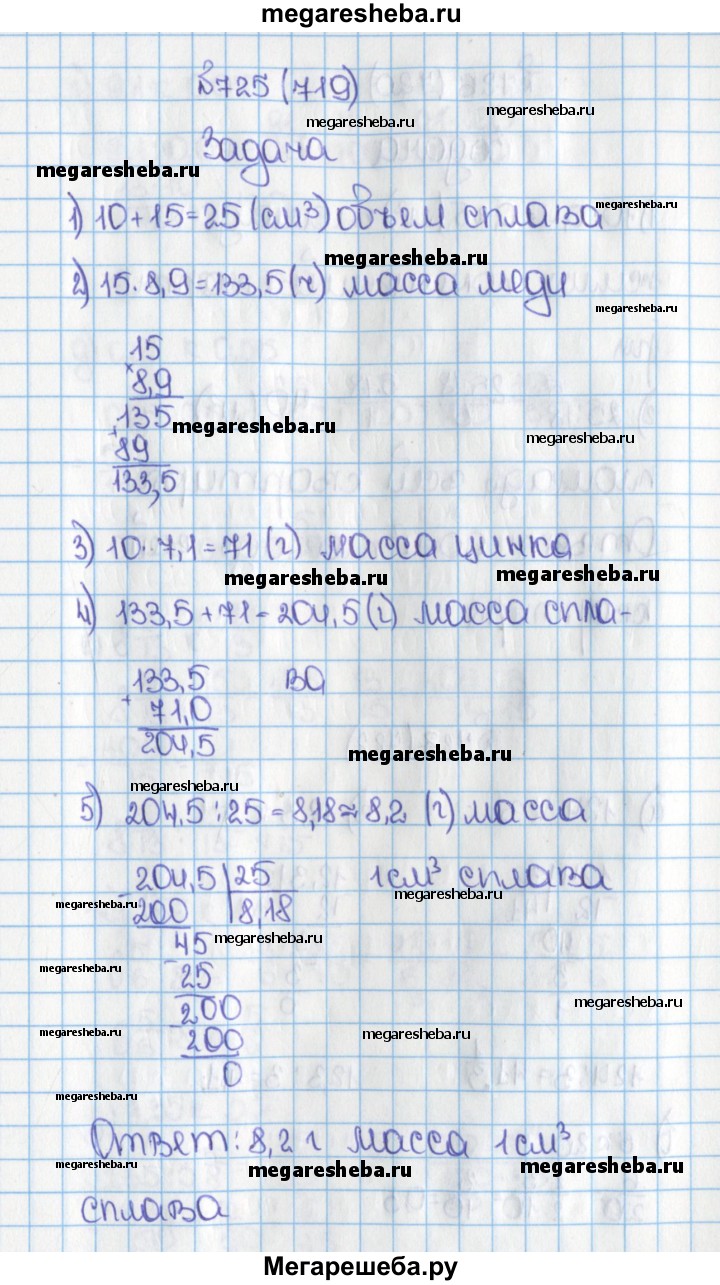 megaresheba.ru
№725 (719)
megaresheba.ru
megaresheba.ru
Задача
megaresheba.ru
1) 10+15=25 (см³) объем сплава
megaresheba.ru
megaresheba.ru
2) 15·8,9=133,5(г) масса меди
megaresheba.ru
15
× 8,9
135
megaresheba.ru
+ 89
megaresheba.ru
133,5
3) 10·7,1=71 (г) масса цинка
megaresheba.ru
megaresheba.ru
4) 133,5+71=204,5(г) масса спла-
133,5 ва
+ 71,0
204,5
megaresheba.ru
megaresheba.ru
5) 204,5:25=8,18≈8,2 (г) масса
- 204,5 | 25 1см³ сплава
megaresheba.ru
megaresheba.ru
200 | 8,18
45
megaresheba.ru
megaresheba.ru
- 25
200
megaresheba.ru
megaresheba.ru
- 200
megaresheba.ru
0
megaresheba.ru
Ответ: 8,2 г масса 1см³
megaresheba.ru
megaresheba.ru
megaresheba.ru
сплава
Мегарешеба.ру